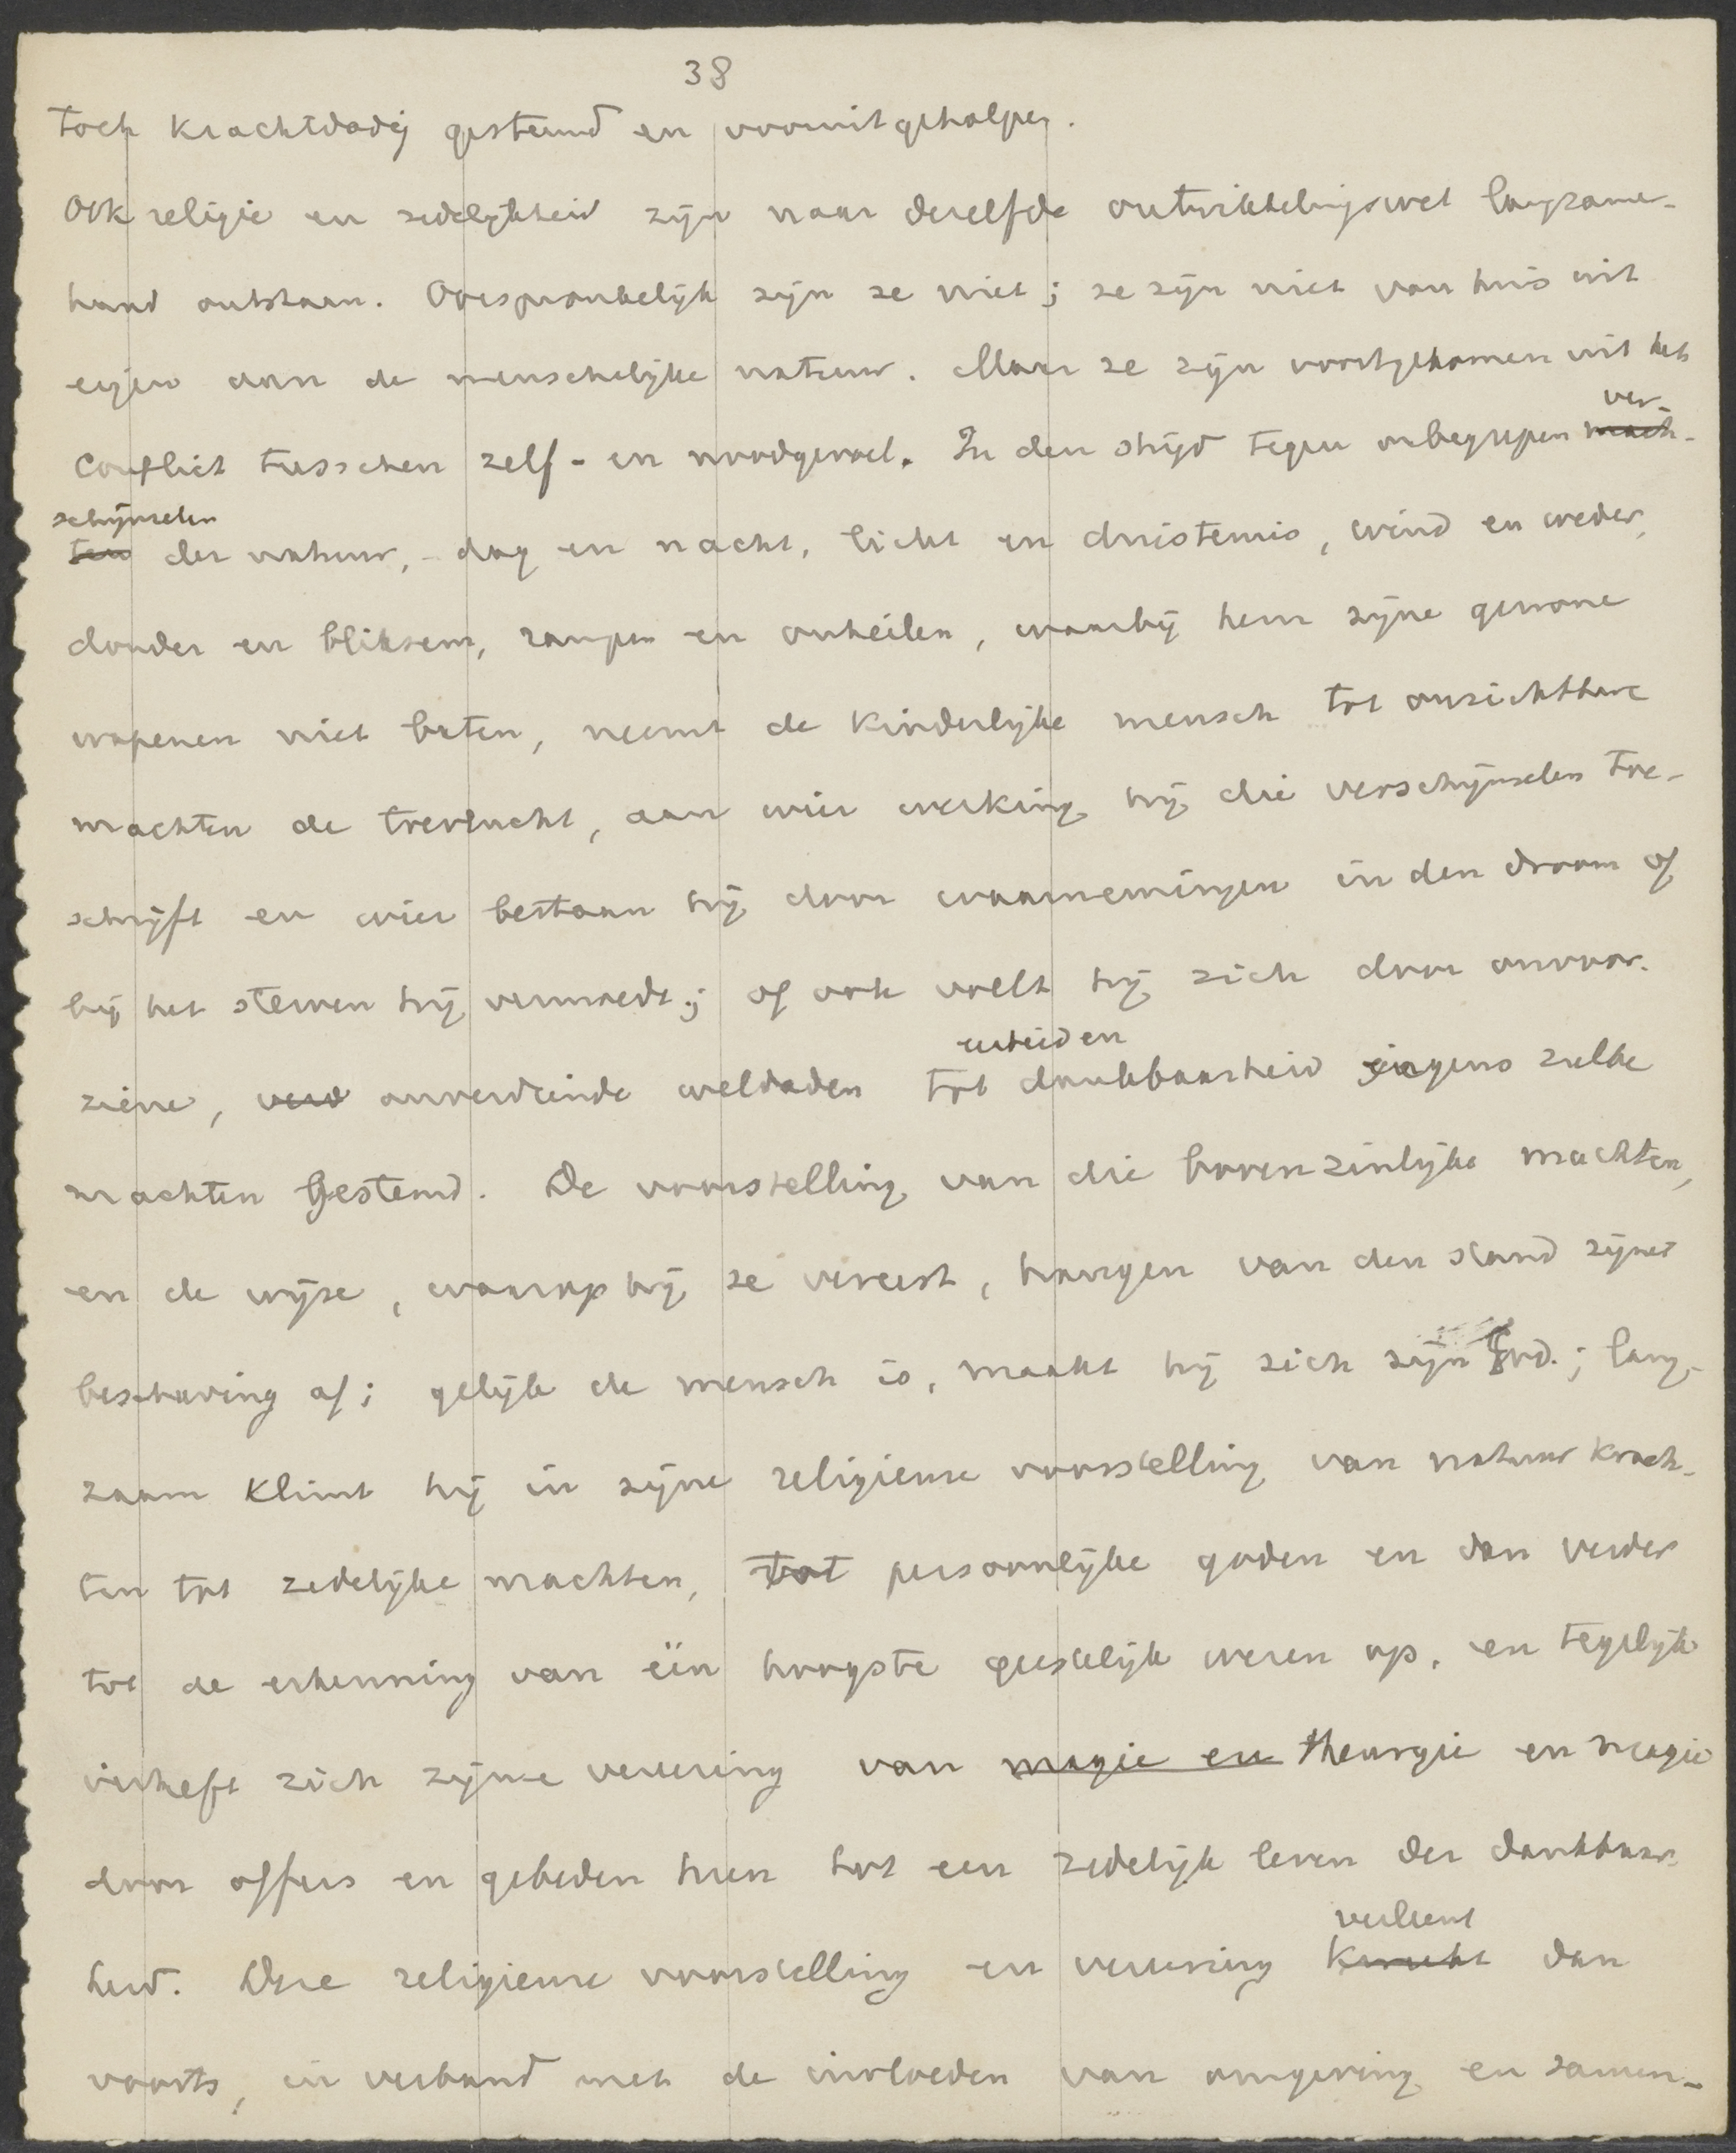 38
toch krachtdadig gesteund en vooruitgeholpen.
Ook religie en zedelijkheid zijn naar dezelfde ontwikkelingswet langzamer-
hand ontstaan. Oorspronkelijk zijn ze niet; ze zijn niet van huis uit
eigen aan de menschelijke natuur. Maar ze zijn voortgekomen uit het
ver-
conflict tusschen zelf- en noodgevoel. In den strijd tegen onbegrepen mach-
schijnselen
ten der natuur, - dag en nacht, licht en duisternis, wind en weder,
donder en bliksem, rampen en onheilen, waarbij hem zijne gewone
wapenen niet baten, neemt de kinderlijke mensch tot onzichtbare
machten de toevlucht, aan wier werking hij die verschijnselen toe-
schrijft en wier bestaan hij door waarnemingen in den droom of
bij het sterven hij vermoedt; of ook voelt hij zich door onvoor-
eerbied en
ziene, verd onverdiende weldaden tot dankbaarheid jegens zulke
machten gestemd. De voorstelling van die bovenzinlijke machten,
en de wijze, waarop hij ze vereert, hangen van den stand zijner
beschaving af; gelijk de mensch is, maakt hij zich zijn God.; lang-
zaam klimt hij in zijne religieuse voorstelling van natuurkrach-
ten tot zedelijke machten, tot persoonlijke goden en dan verder
tot de erkenning van één hoogste geestelijk wezen op, en tegelijk
verheft zich zijne vereering van magie en theurgie en magie
door offers en gebeden heen tot een zedelijk leven der dankbaar-
heid. Deze religieuse voorstelling en vereering kweekt dan
verleent
voorts, in verband met de invloeden van omgeving en samen-